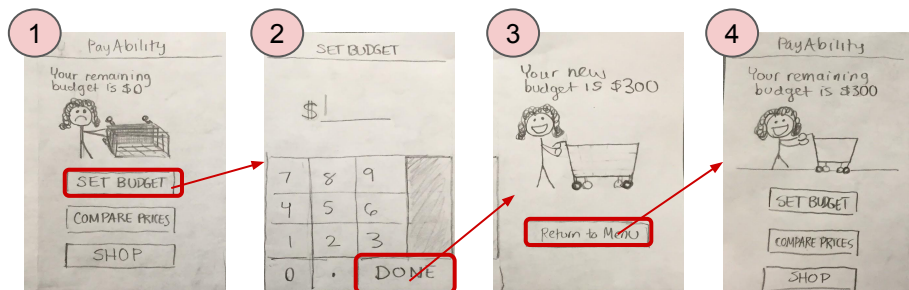 1
PayAbility
Your remaining
budget is $0
SET BUDGET
COMPARE PRICES
SHOP
2
SET BUDGET
$
7 8 9
4 5 6
1 2 3
0 . DONE
3
Your new
budget is $300
Return to Menu
4
PayAbility
Your remaining
budget is $300
SET BUDGET
COMPARE PRICES
SHOP